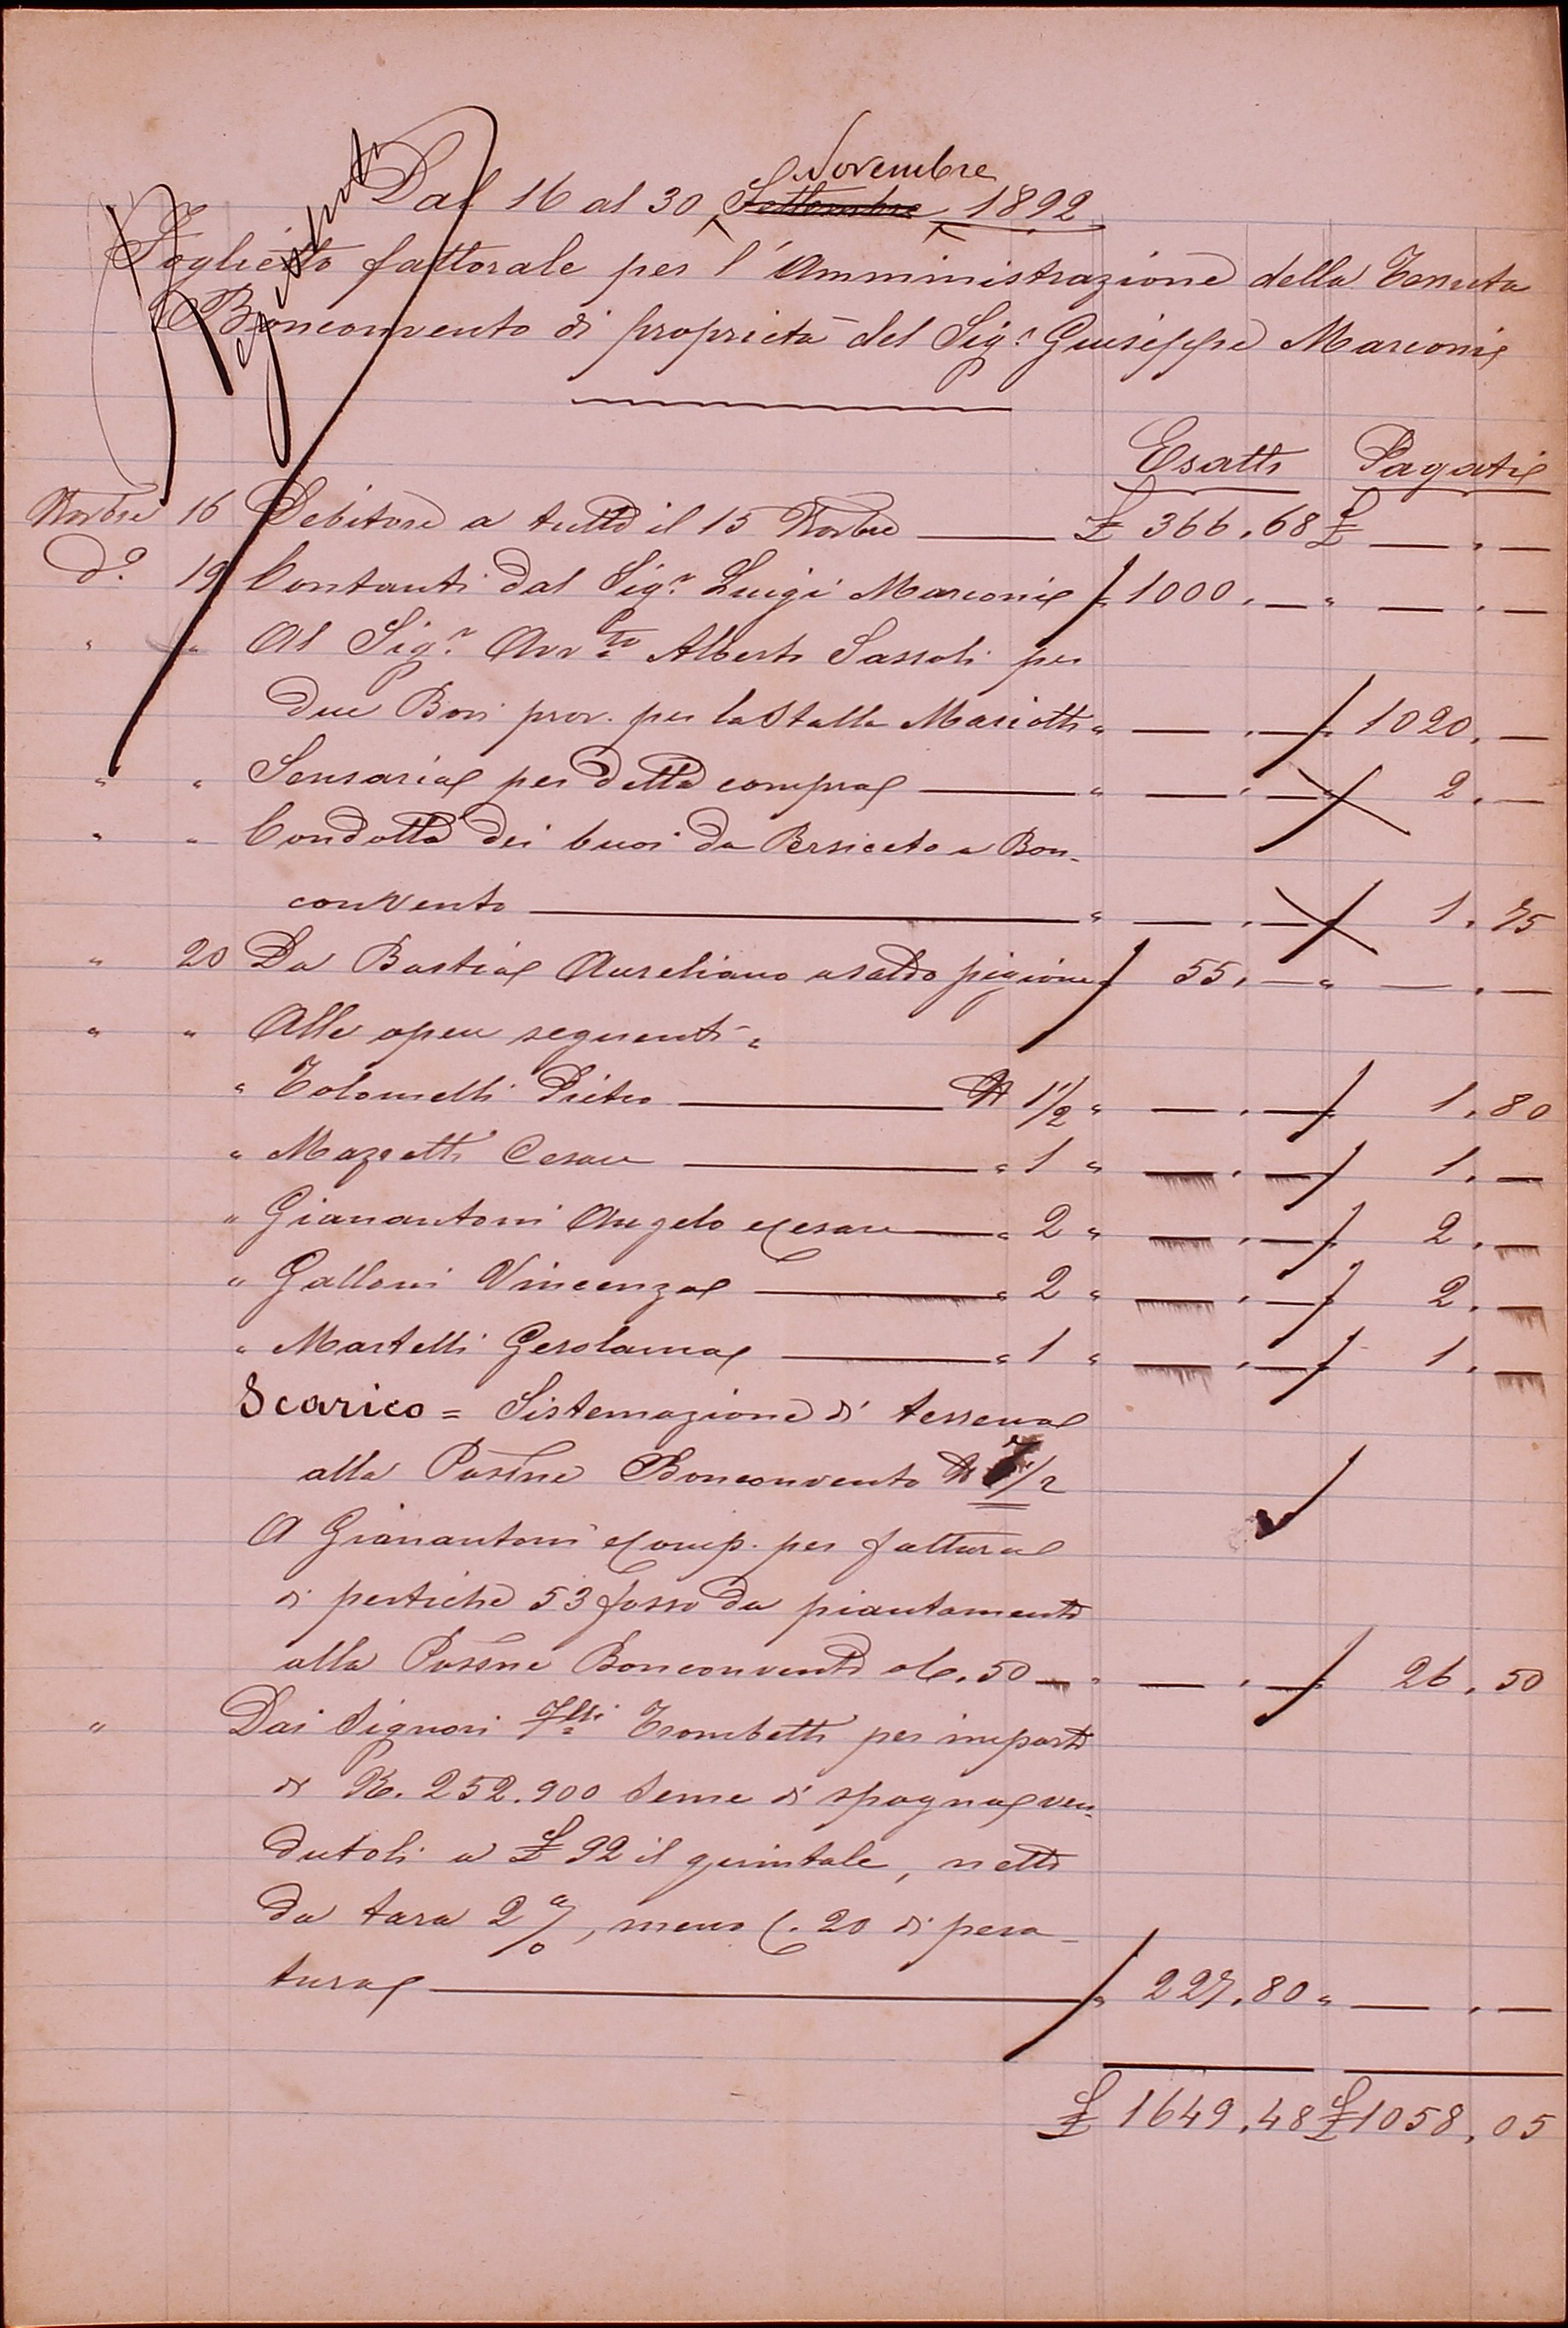 Novembre
Dal 16 al 30 Settembre 1892
Foglietto fattorale per l'Amministrazione della Tenuta
Bonconvento di proprietà del Sigr Giuseppe Marconi
Esatti Pagati
Novbre 16 Debitore a tutto il 15 Novbre £ 366.68 £ — . —
do. 19 Contanti dal Sigr. Luigi Marconi " 1000. — " — . —
" " Al Sigr. Avvto Alberto Sassoli per
due Bovi prov. per la Stalla Mariotti " — . — " 1020. —
" " Sensaria per detta compra " — . — " 2. —
" " Condotta dei buoi da Persiceto a Bon-
convento " — . — " 1.75
" 20 Da Bastia Aureliano a saldo pigione " 55. — " — . —
" " Alle opere seguenti =
" Tolomelli Pietro N 1 1/2 " — . — " 1.80
" Mazzetti Cesare " 1 " — . — " 1. —
" Gianantoni Angelo e Cesare " 2 " — . — " 2. —
" Galloni Vincenza " 2 " — . — " 2. —
" Martelli Gerolama " 1 " — . — " 1. —
Scarico = Sistemazione di terrena
alla Possne Bonconvento N 7 1/2
A Gianantoni e Comp. per fattura
di pertiche 53 fosso da piantamento
alla Possne Bonconvento a C. 50 — " — . — " 26.50
" Dai Signori Flli Trombetti per importo
di K. 252.900 Seme di spagna ven-
dutoli a £ 92 il quintale, netto
da tara 2 %, meno C. 20 di pesa-
tura " 227.80 " — . —
£ 1649.48 £ 1058.05